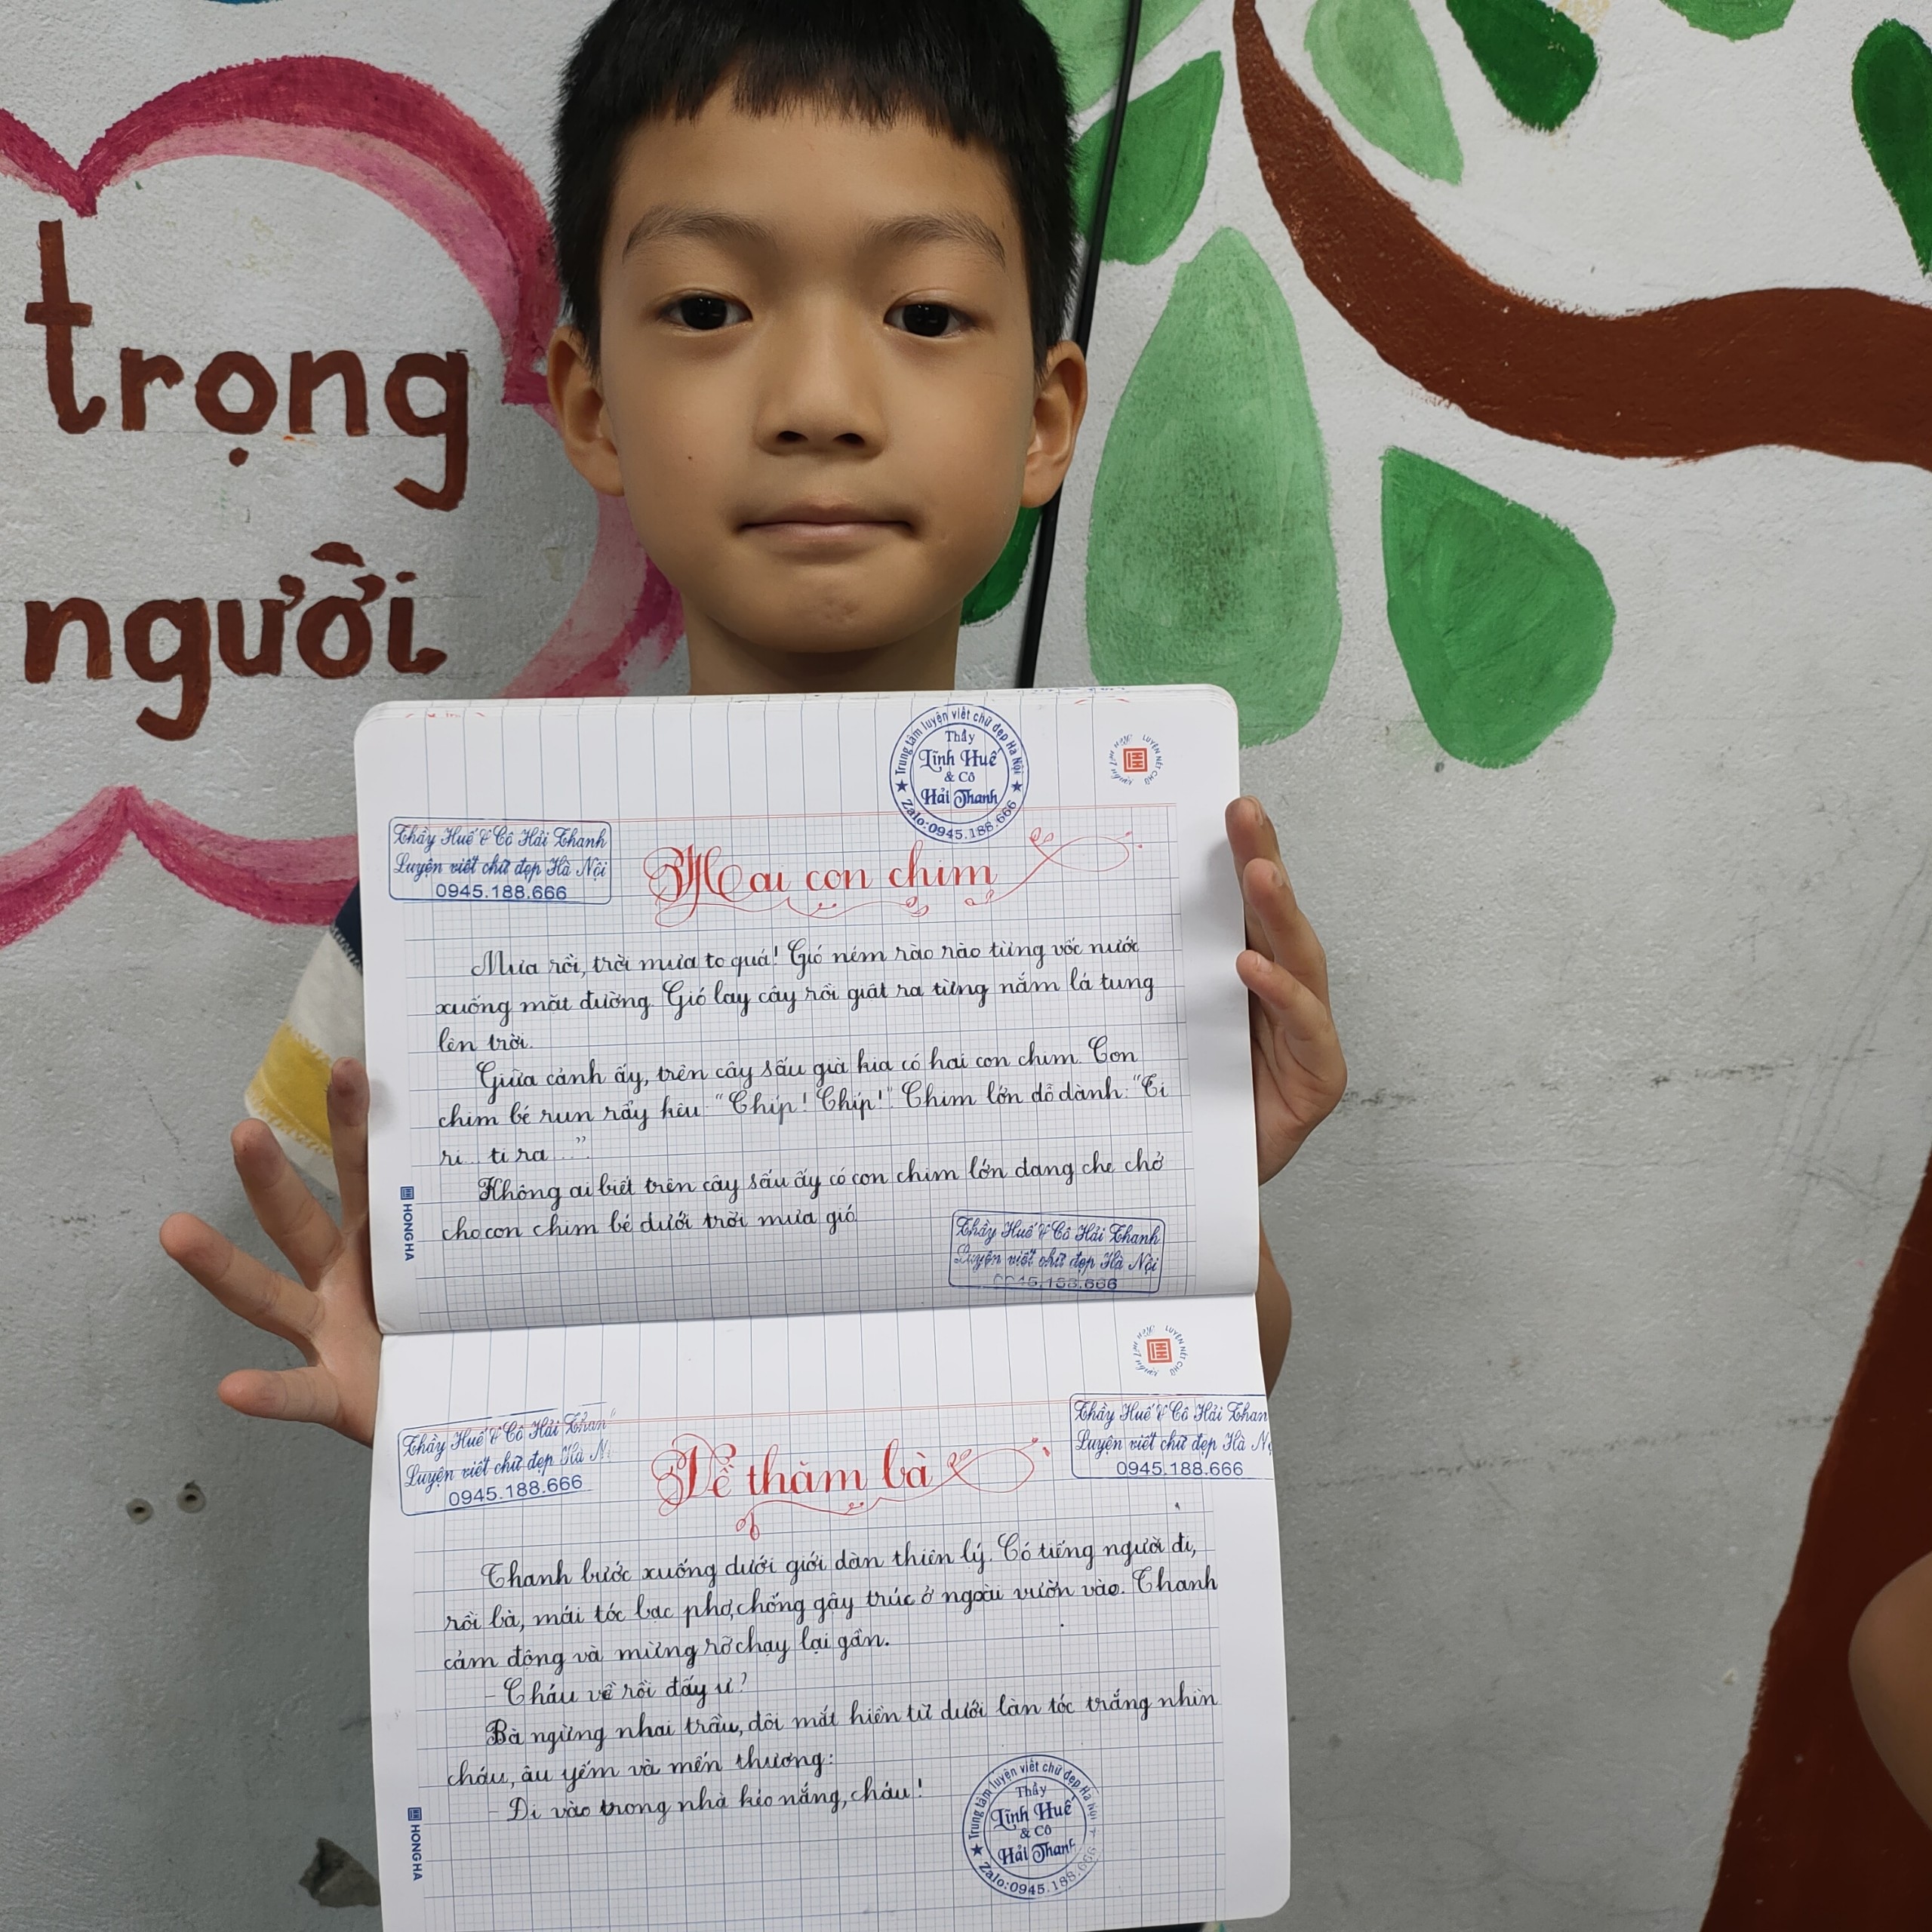 trọng
người
Trung tâm luyện viết chữ đẹp Hà Nội
Thầy
Lĩnh Huê
& Cô
Hải Thanh
Zalo:0945.188.666
LUYỆN NÉT CHỮ
Thầy Huế & Cô Hải Thanh
Luyện viết chữ đẹp Hà Nội
0945.188.666
Hai con chim
Mưa rồi, trời mưa to quá! Gió ném rào rào từng vốc nước
xuống mặt đường. Gió lay cây rồi giật ra từng nắm lá tung
lên trời.
Giữa cảnh ấy, trên cây sấu già kia có hai con chim. Con
chim bé run rẩy kêu: “Chíp! Chíp!”. Chim lớn dỗ dành: “Ti
ri... ti ra ...”.
Không ai biết trên cây sấu ấy có con chim lớn đang che chở
cho con chim bé dưới trời mưa gió.
HONG HA
Thầy Huế & Cô Hải Thanh
Luyện viết chữ đẹp Hà Nội
0945.188.666
LUYỆN NÉT CHỮ
Thầy Huế & Cô Hải Than
Luyện viết chữ đẹp Hà N
0945.188.666
Về thăm bà
Thầy Huế & Cô Hải Than
Luyện viết chữ đẹp Hà N
0945.188.666
Thanh bước xuống dưới giới dàn thiên lý. Có tiếng người đi,
rồi bà, mái tóc bạc phơ, chống gậy trúc ở ngoài vườn vào. Thanh
cảm động và mừng rỡ chạy lại gần.
- Cháu về rồi đấy ư?
Bà ngừng nhai trầu, đôi mắt hiền từ dưới làn tóc trắng nhìn
cháu, âu yếm và mến thương:
- Đi vào trong nhà kẻo nắng, cháu!
HONG HA
Trung tâm luyện viết chữ đẹp Hà Nội
Thầy
Lĩnh Huê
& Cô
Hải Thanh
Zalo:0945.188.666